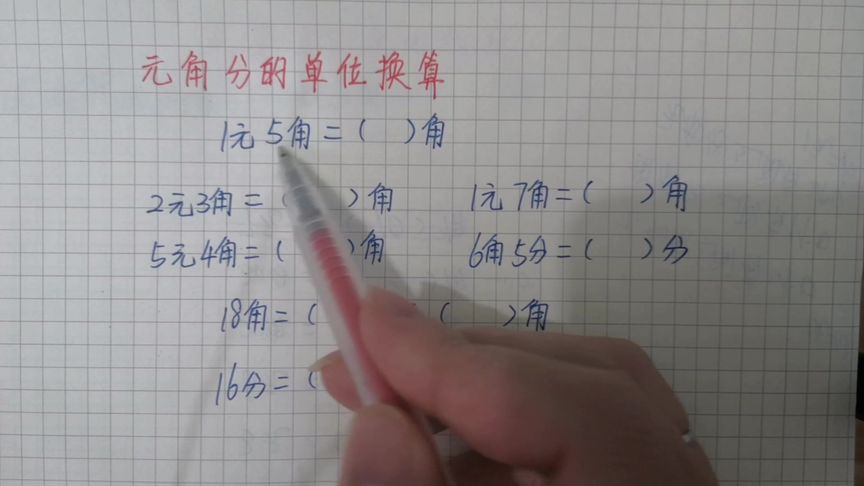 元角分的单位换算
1元5角=( )角
2元3角=( )角 1元7角=( )角
5元4角=( )角 6角5分=( )分
18角=( ( )角
16分=(